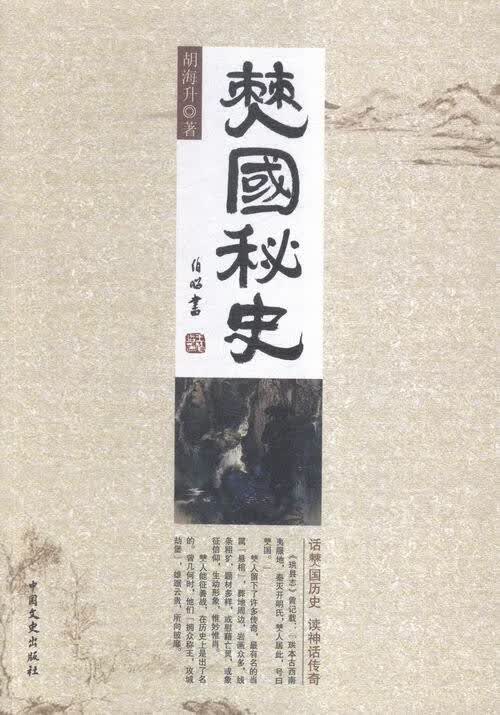 僰國秘史
胡海升◎著
话僰国历史 读神话传奇
《珙县志》曾记载，“珙本古西南
夷服地，秦灭开明氏，僰人居此，号曰
僰国。”
僰人留下了许多传奇，最有名的当
属“悬棺”，葬地周边，岩画众多，线
条粗犷，题材多样，或慰藉亡灵，或象
征信仰，生动形象，惟妙惟肖。
僰人能征善战，在历史上是出了名
的。曾几何时，他们“拥众称王，攻城
劫堡”，雄踞云贵，所向披靡。
中国文史出版社